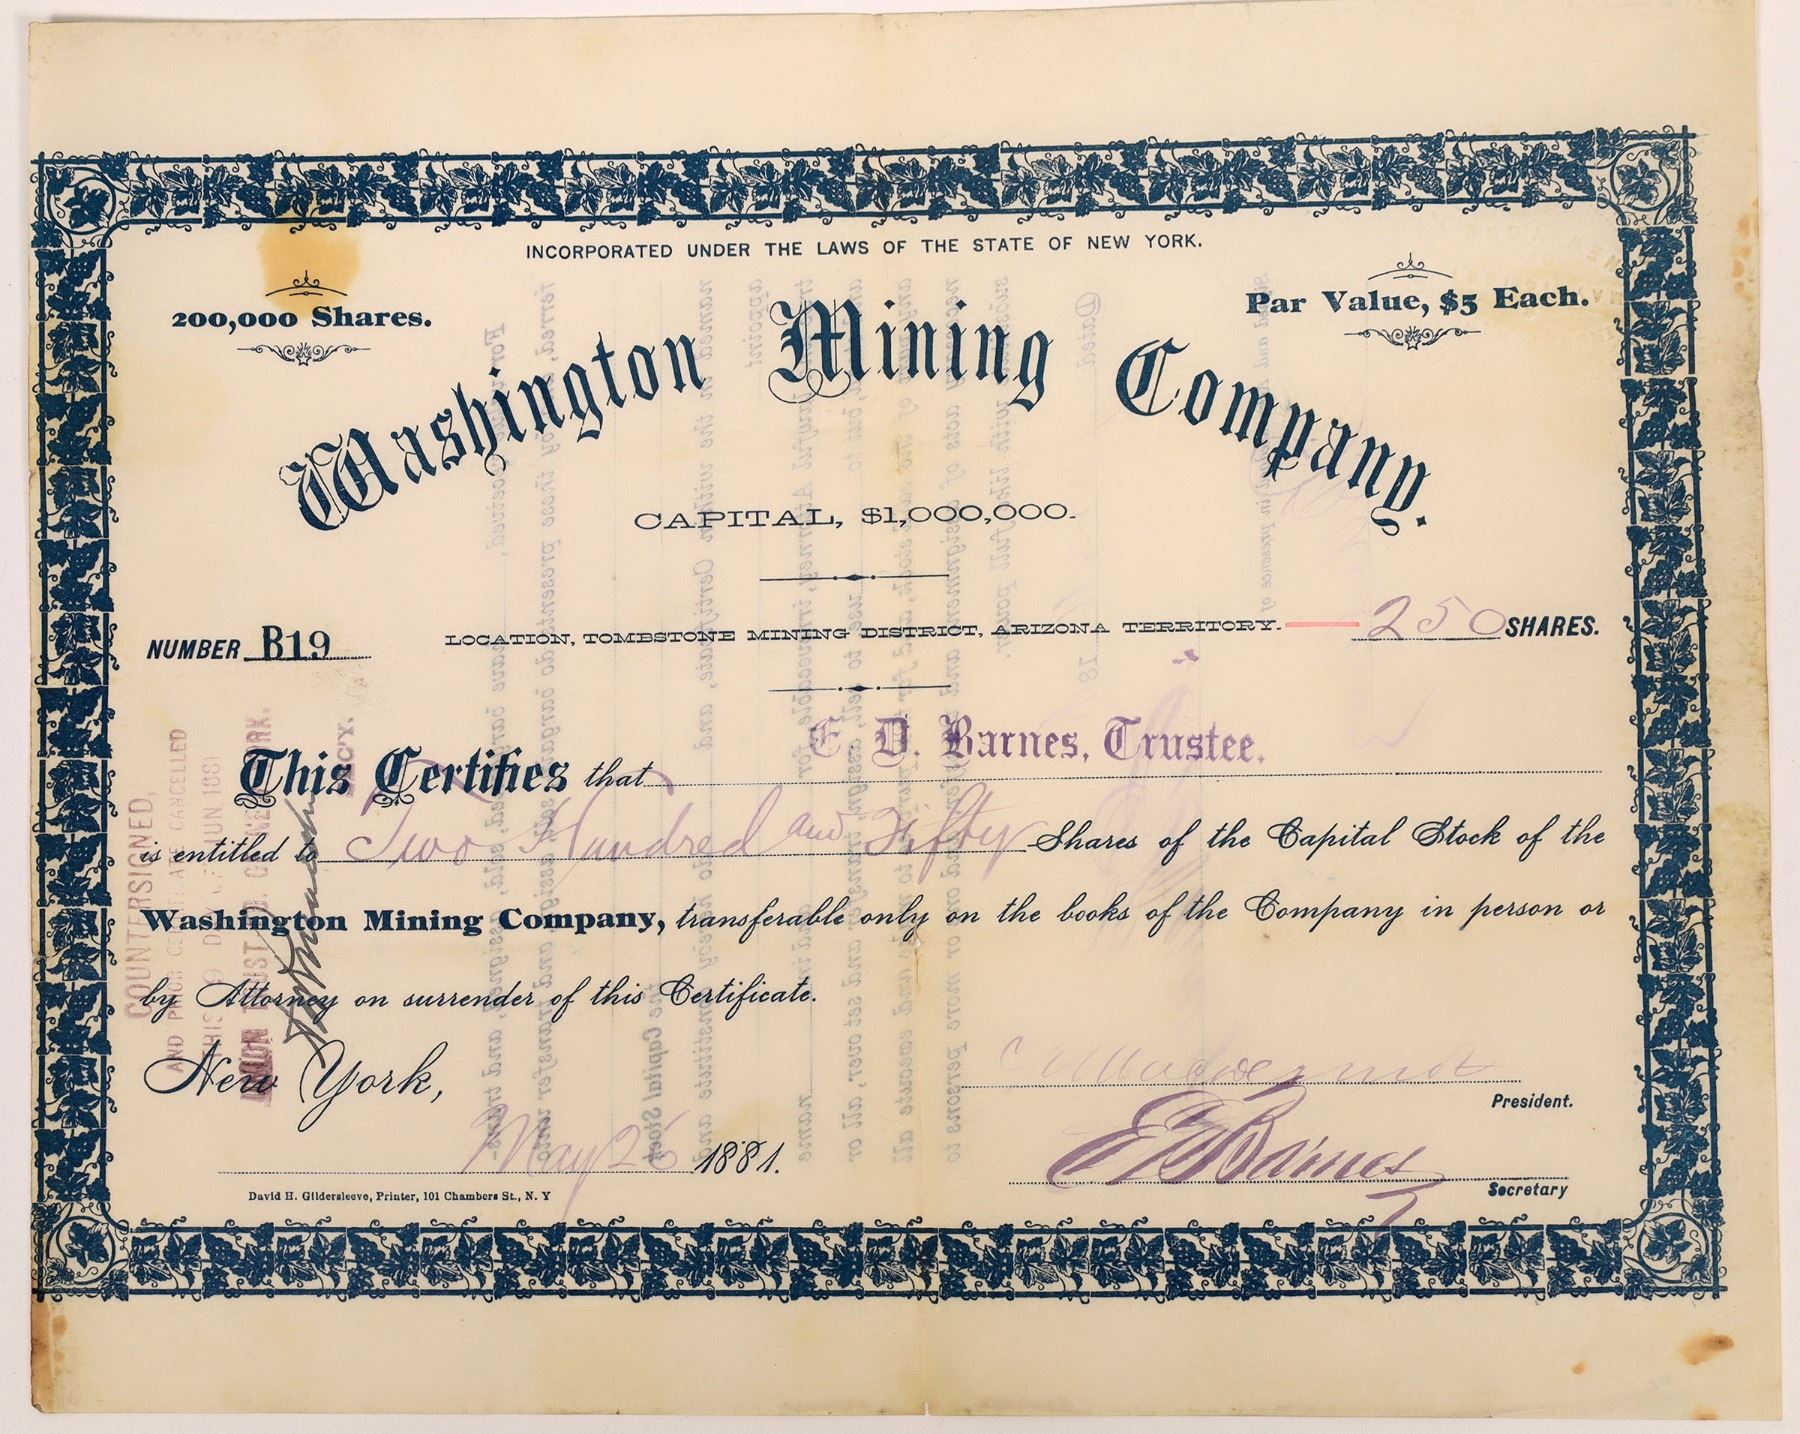 INCORPORATED UNDER THE LAWS OF THE STATE OF NEW YORK.
200,000 Shares.
Par Value, $5 Each.
Washington Mining Company.
CAPITAL, $1,000,000.
NUMBER B19
LOCATION, TOMBSTONE MINING DISTRICT, ARIZONA TERRITORY.
250 SHARES.
This Certifies that E. D. Barnes, Trustee.
is entitled to Two Hundred and Fifty Shares of the Capital Stock of the
Washington Mining Company, transferable only on the books of the Company in person or
by Attorney on surrender of this Certificate.
New York,
President.
May 26 1881.
E D Barnes
Secretary
David H. Gildersleeve, Printer, 101 Chambers St., N. Y
COUNTERSIGNED,
AND PRIOR CERTIFICATE CANCELLED
THIS DAY OF JUN 1881
UNION TRUST CO. OF NEW YORK.